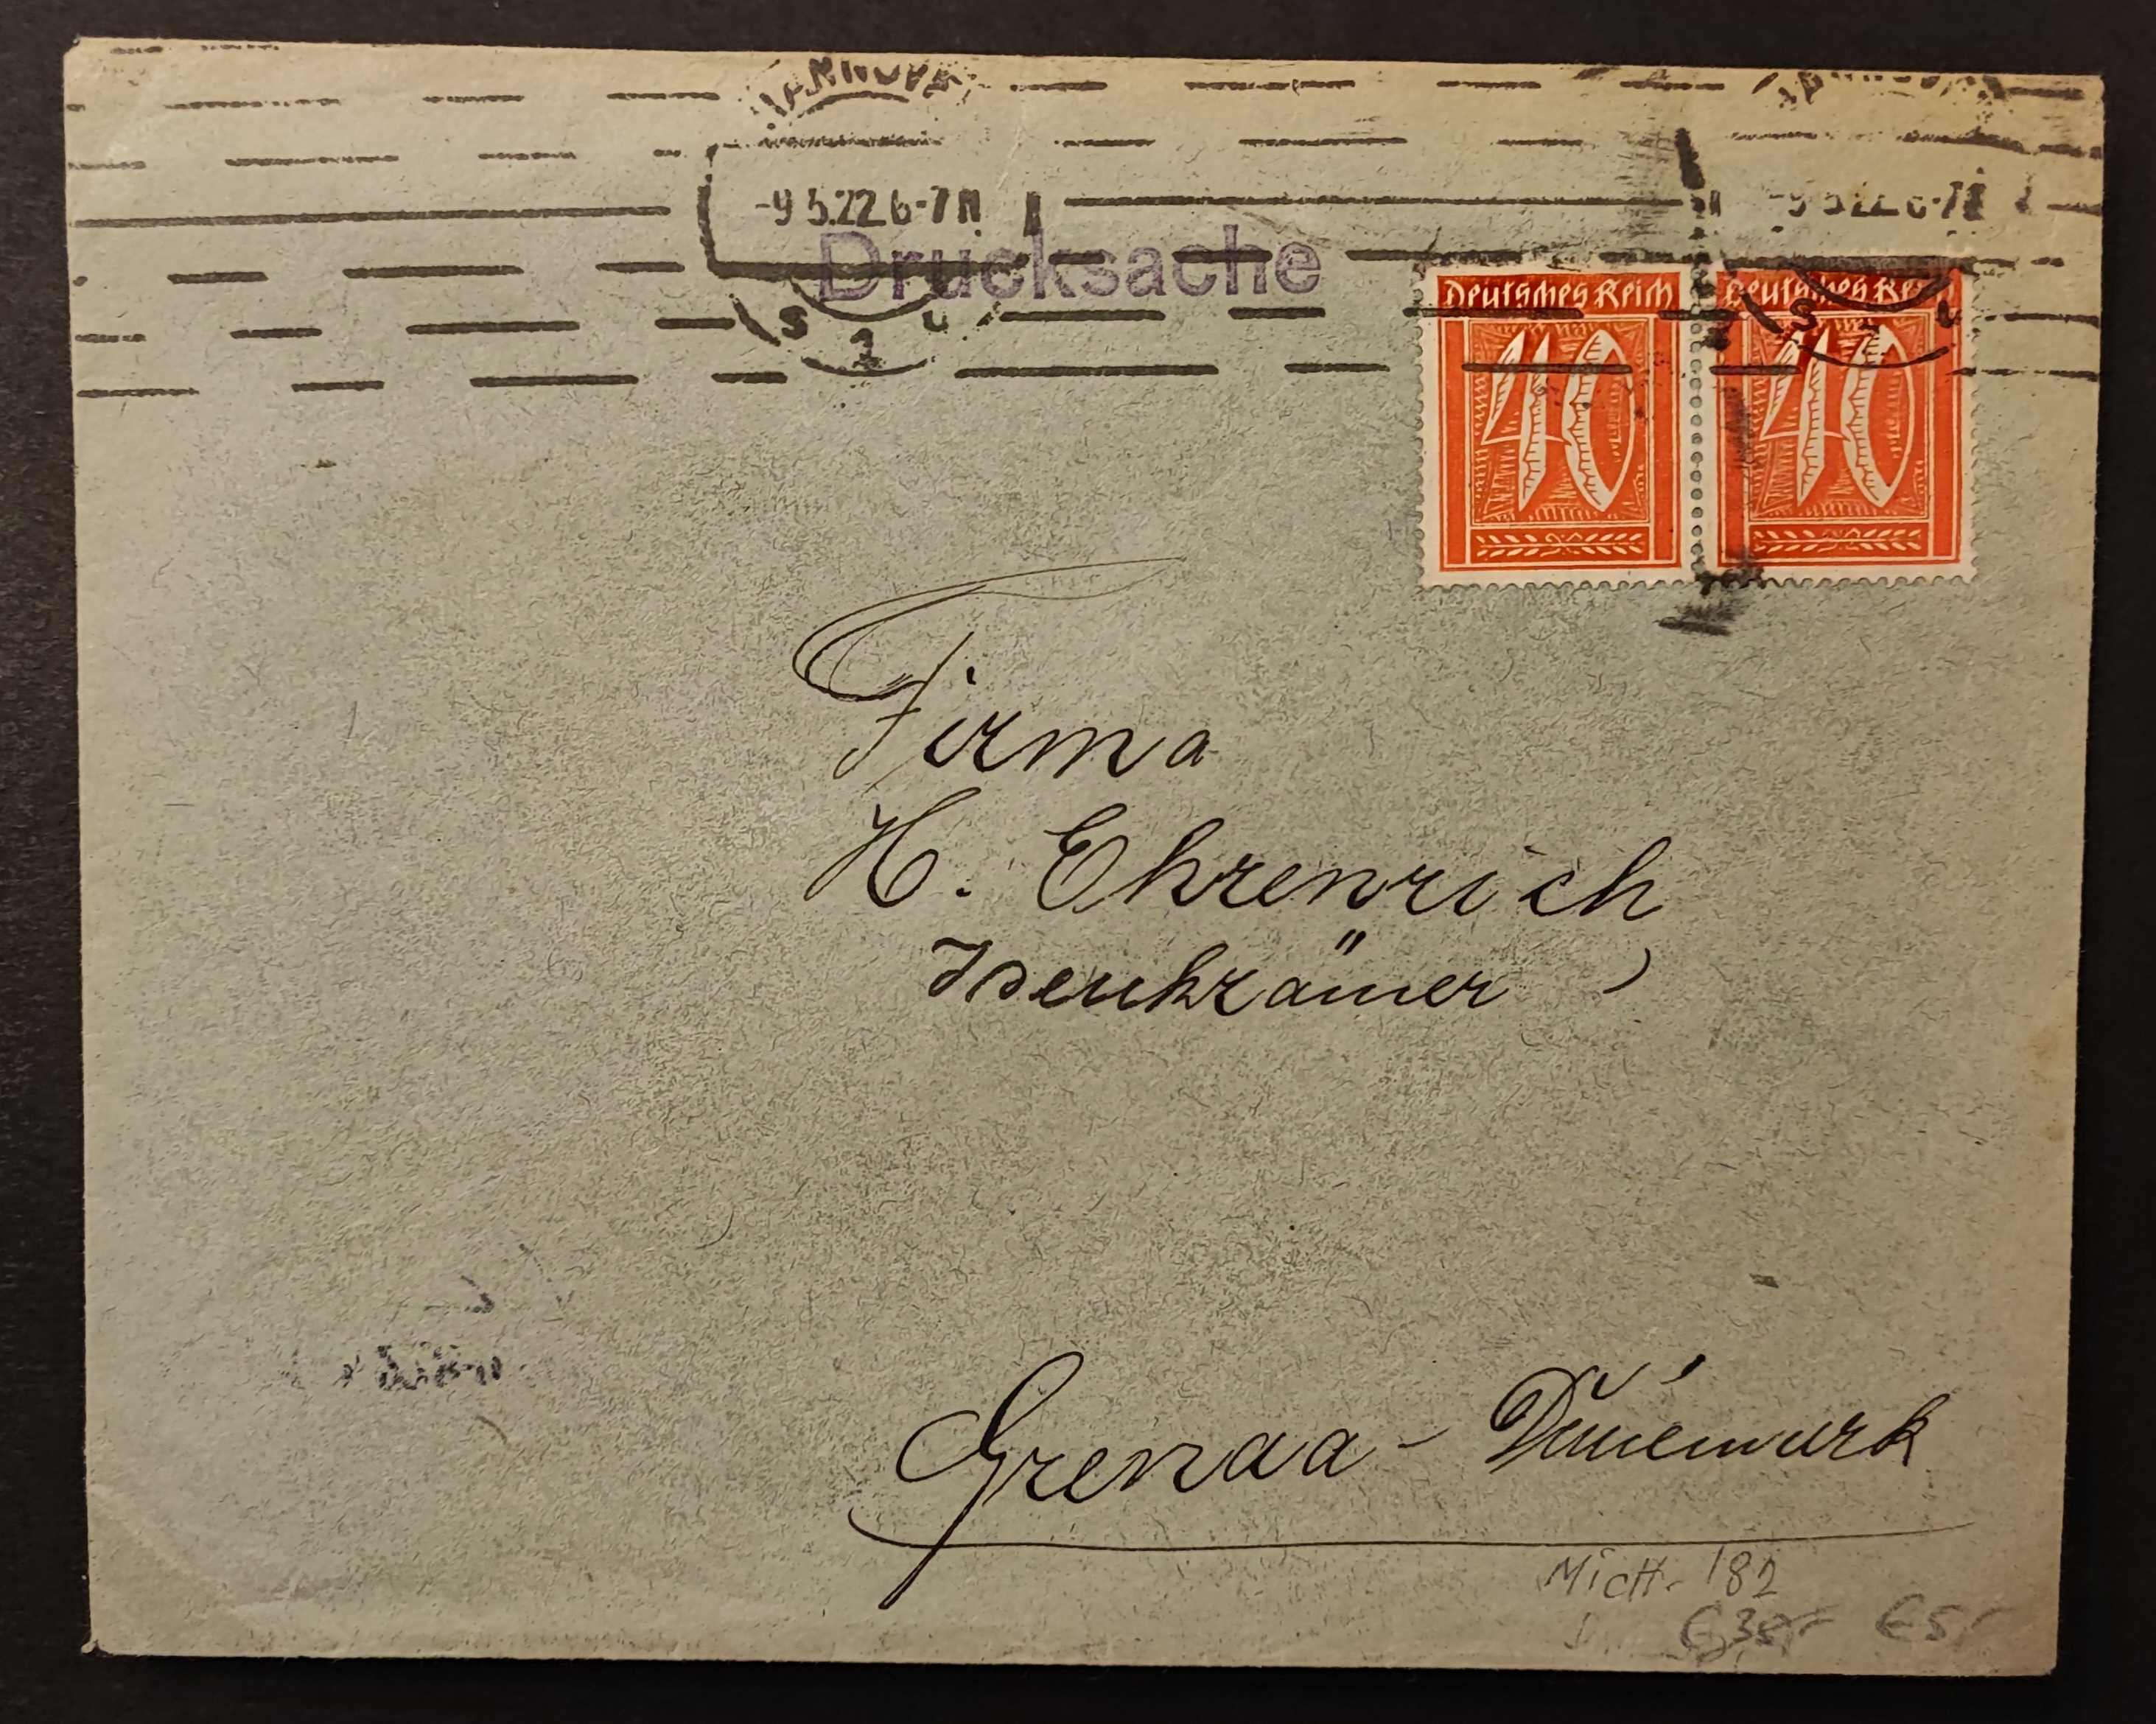 HANNOVER
-9 5.22 6-7 N
Drucksache
S 1 U
Deutsches Reich
40
Deutsches Reich
40
Firma
H. Ehrenrich
Grenaa - Dänemark
Mich. 182
€ 5,-